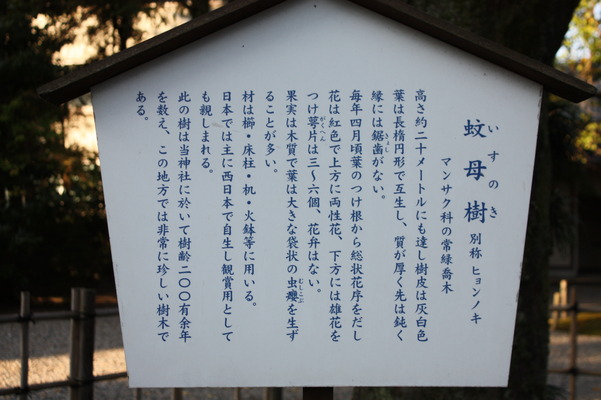 いすのき
蚊母樹 別称 ヒョンノキ
マンサク科の常緑喬木
高さ約二十メートルにも達し樹皮は灰白色
葉は長楕円形で互生し、質が厚く先は鈍く
縁には鋸歯がない。
きょし
毎年四月頃葉のつけ根から総状花序をだし
花は紅色で上方に両性花、下方には雄花を
つけ萼片は三〜六個、花弁はない。
がくへん
果実は木質で葉は大きな袋状の虫癭を生ず
むしこぶ
ることが多い。
材は櫛・床柱・机・火鉢等に用いる。
日本では主に西日本で自生し観賞用として
も親しまれる。
此の樹は当神社に於いて樹齢二〇〇有余年
を数え、この地方では非常に珍しい樹木で
ある。